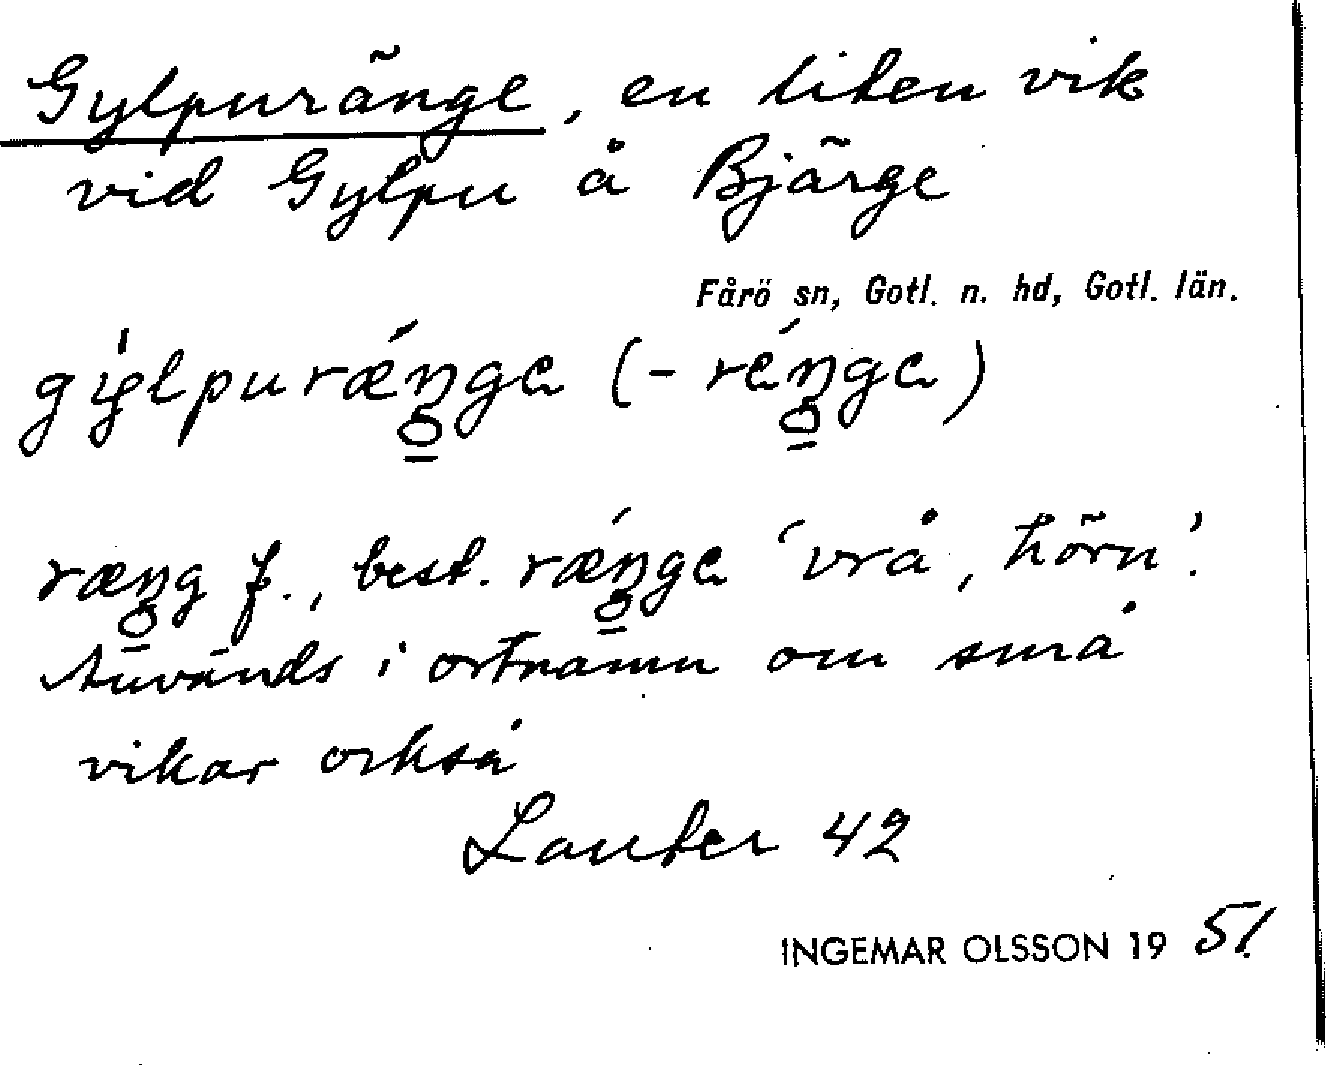 Gylpuränge, en liten vik
vid Gylpu å Bjärge
Fårö sn, Gotl. n. hd, Gotl. län.
gylpurǽŋge (-réŋge)
ræŋg f., best. rǽŋge 'vrå, hörn'.
Används i ortnamn om små
vikar också
Lauter 42
INGEMAR OLSSON 19 51